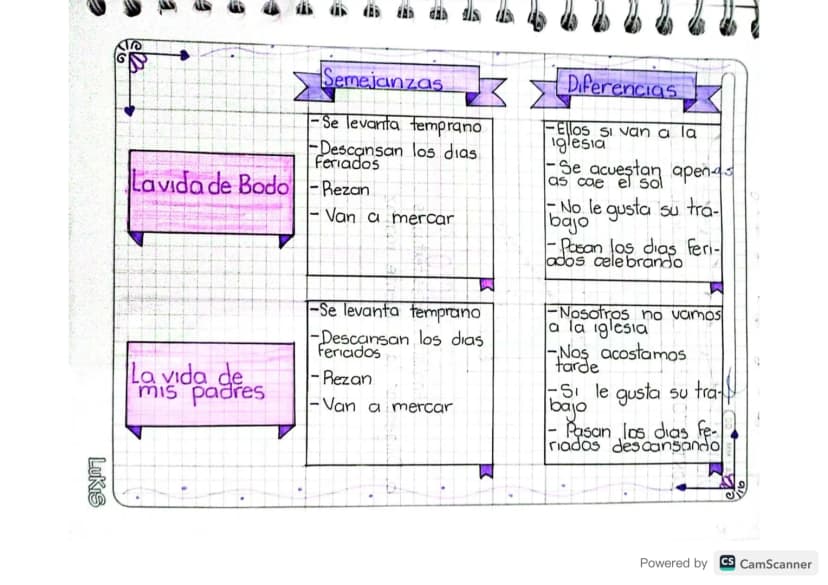 Semejanzas
Diferencias
La vida de Bodo
-Se levanta temprano
-Descansan los dias
feriados
-Rezan
- Van a mercar
-Ellos si van a la
iglesia
-Se acuestan apen-
as cae el sol
-No le gusta su tra-
bajo
-Pasan los dias feri-
ados celebrando
La vida de
mis padres
-Se levanta temprano
-Descansan los dias
feriados
-Rezan
-Van a mercar
-Nosotros no vamos
a la iglesia
-Nos acostamos
tarde
-Si le gusta su tra-
bajo
- Pasan los dias fe-
riados descansando
LuKS
Powered by CS CamScanner